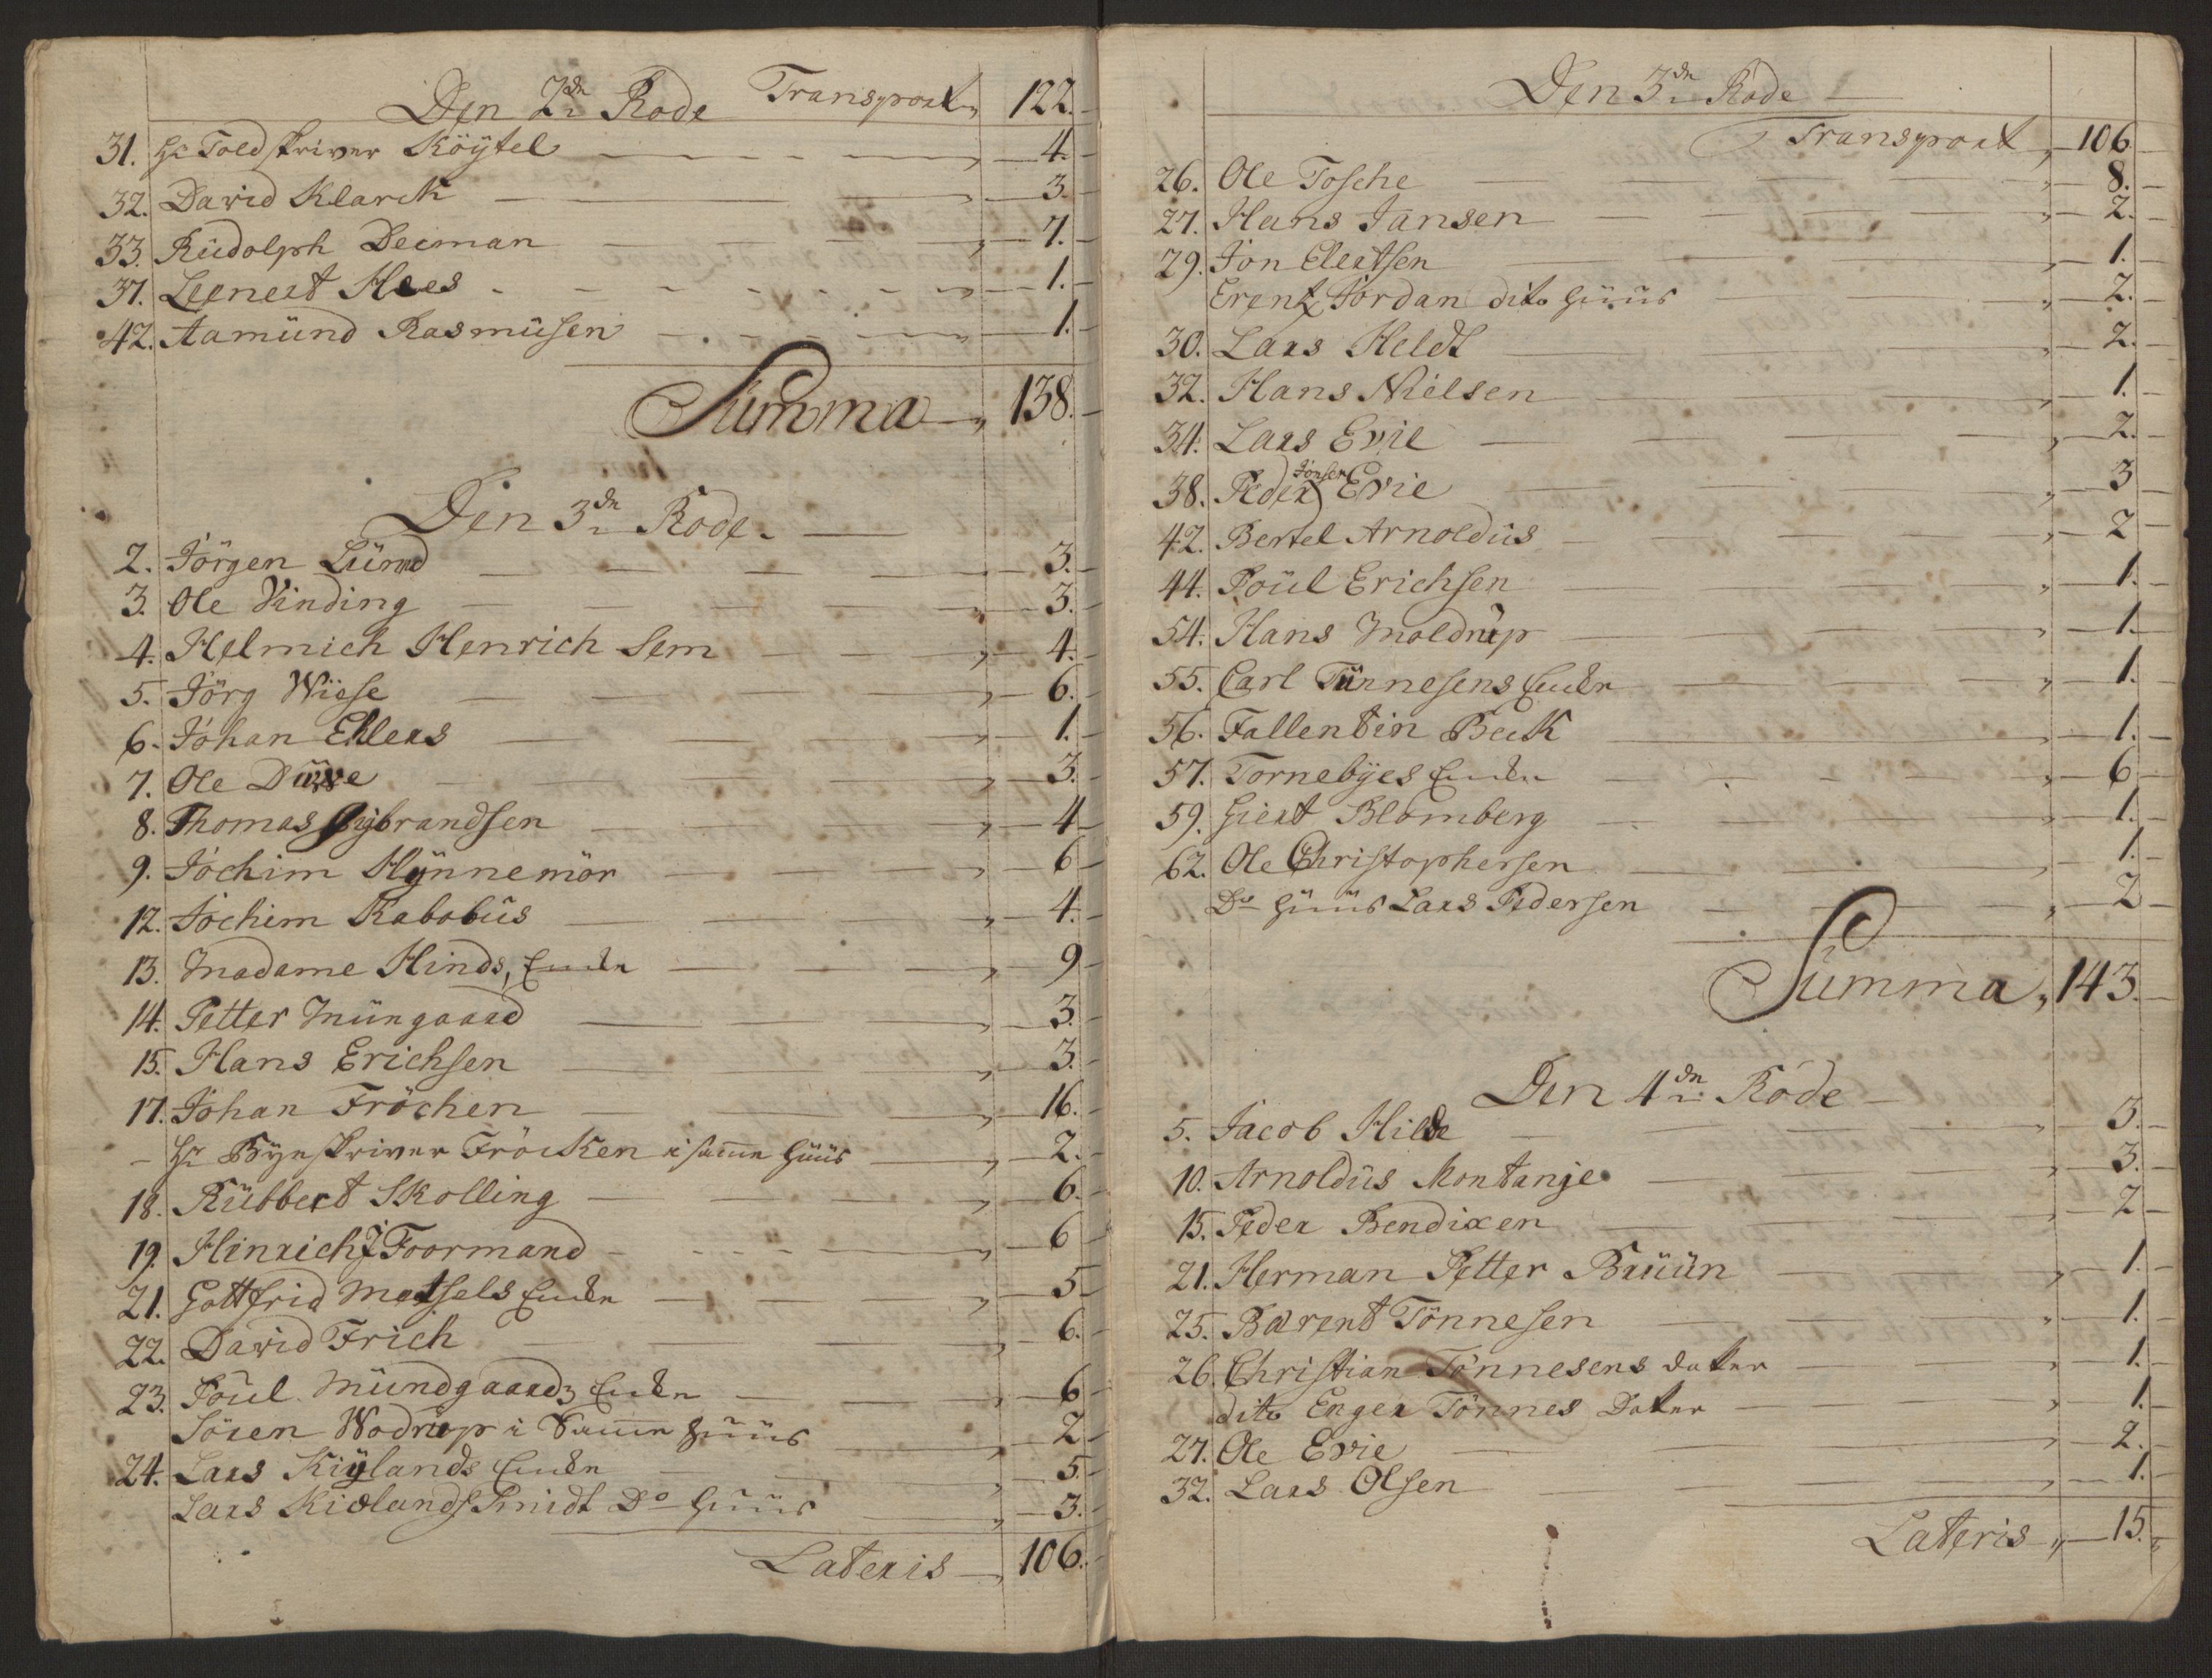 Den 2dn Rode Transport 122.
31. Hr Toldskriver Köÿtel 4.
32. David Klarck 3.
33. Rüdolph Deeman 7.
37. Leenert Hees 1.
42. Aamünd Rasmüsen 1.
Summa 138.
Den 3dn Rode.
2. Jörgen Lünd 3.
3. Ole Vinding 3.
4. Helmich Henrich Sem 4.
5. Jörg Wiese 6.
6. Johan Ehlers 1.
7. Ole 3.
8. Thomas Sÿbrandsen 4
9. Jochim Hÿnnemör 6
12. Jochim Rabobüs 4.
13. Madame Hinds, Enke 9
14. Petter Müngaard 3.
15. Hans Erichsen 3.
17. Johan Fröchen 16.
- Hr Bÿeskriver Fröcken i samme Hüüs 2.
18. Rübbert Skolling 6.
19. Hinrich J Foormand 6
21. Gottfrid Metsels Enke 5
22. David Frich 6.
23. Poül Mündgaards Enke 6
Sören Wodrüp i Samme Hüüs 2
24. Lars Kiÿlands Enke 5.
Lars Kielands Smidt Do Hüüs 3.
Lateris 106.
Den 3dn Rode
Transport 106
26. Ole Tosche 8.
27. Hans Jansen 2.
29. Jon Elertsen 1.
Erentz Jordan dito Hüüs 2.
30. Lars Heldt 2.
32. Hans Nielsen 1.
34. Lars Evie 2.
38. Peder Jonsen Evie 3
42. Bertel Arnoldüs 2
44. Poül Erichsen 1.
54. Hans Moldrüp 1.
55. Carl Tünnesens Enke 1.
56. Fallentin Beck 1.
57. Tornebÿes Enke 6
59. Giert Blomberg 1.
62. Ole Christophersen 1.
Do Hüüs Lars Pedersen 2
Summa 143.
Den 4dn Rode
5. Jacob Hilde 3.
10. Arnoldüs Montanje 3.
15. Peder Bendixen 2
21. Herman Petter Brüün 1.
25. Barent Tönnesen 1.
26. Christian Tönnesens Datter 1.
dito Enger Tönnes Datter 1.
27. Ole Evie 2.
32. Lars Olsen 1.
Lateris 15.